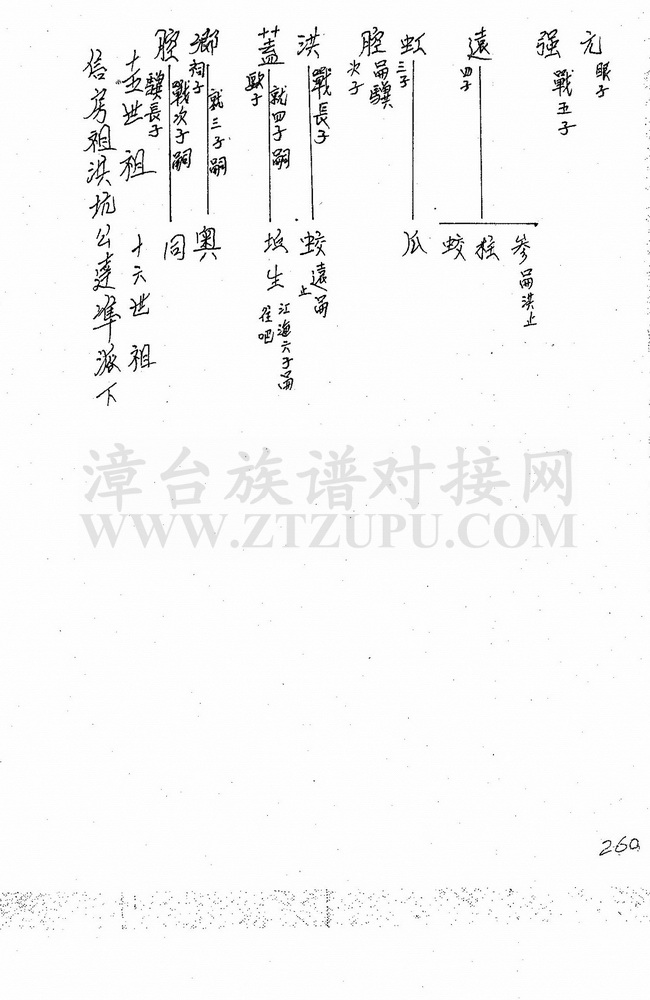 元
眼子
强
戰五子
遠
四子
參
嗣洪止
蛟
虹
三子
瓜
腔
嗣驥
次子
洪
戰長子
蛟
遠嗣
止
蓋
就四子嗣
歐子
坂生
江漁六子嗣
鄉
就三子嗣
祠子
奥
腔
戰次子嗣
驥長子
同
十五世祖 十六世祖
信房祖洪坑公達準派下
漳台族谱对接网
WWW.ZTZUPU.COM
260